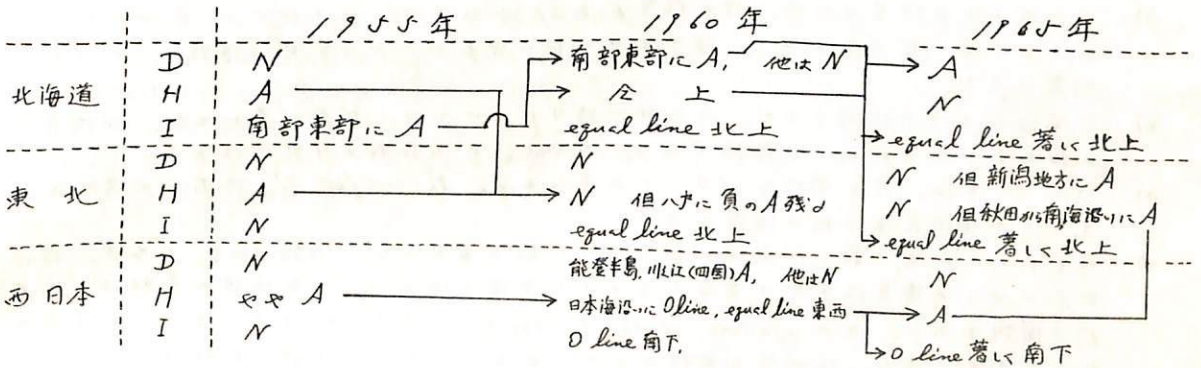 1955年 1960年 1965年
北海道 D N 南部東部に A, 他は N A
H A 仝上 N
I 南部東部に A equal line 北上 equal line 著しく北上
東北 D N N N 但新潟地方に A
H A N 但八戸に負の A 残る N 但秋田から南海沿いに A
I N equal line 北上 equal line 著しく北上
西日本 D N 能登半島, 川之江(四国)A, 他はN N
H やや A 日本海沿いに 0 line, equal line 東西 A
I N 0 line 南下, 0 line 著しく南下